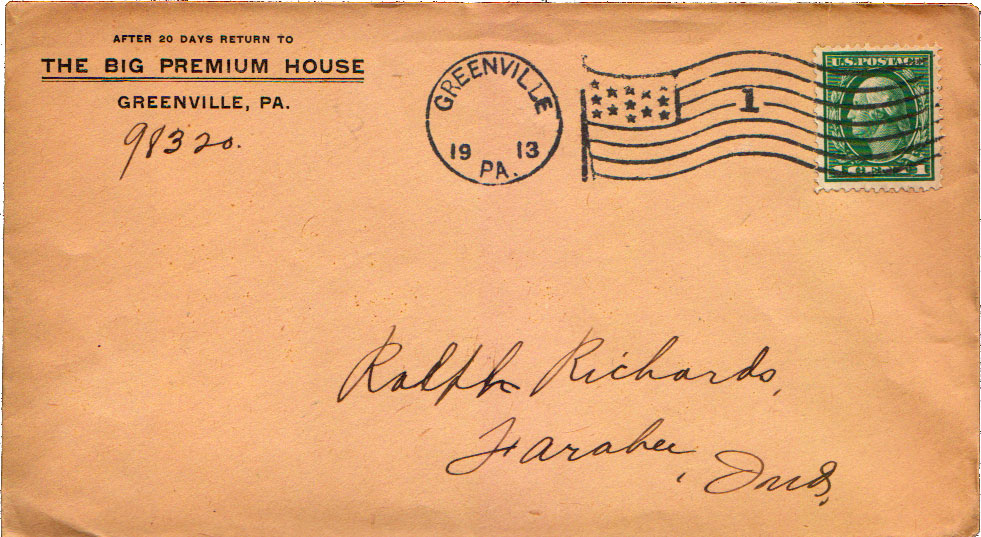 AFTER 20 DAYS RETURN TO
THE BIG PREMIUM HOUSE
GREENVILLE, PA.
98320.
GREENVILLE
19 13
PA.
1
U.S. POSTAGE
Ralph Richards,
Farabee, Ind,